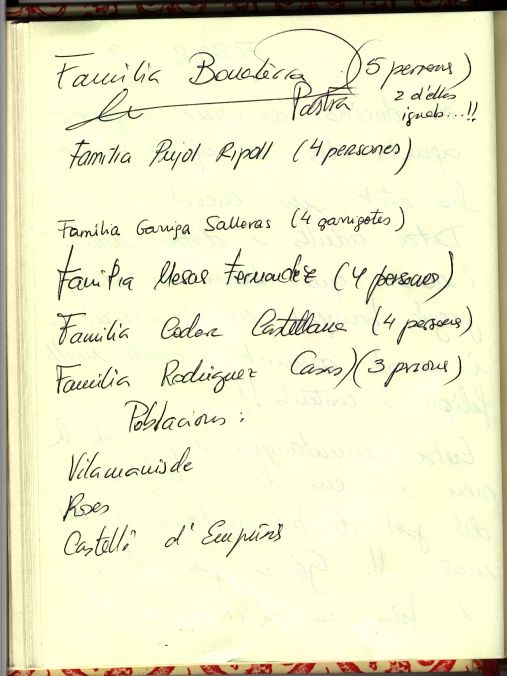 Familia Bonaterra : (5 persons)
Pastra 2 d'elles
iguals...!!
Familia Pujol Ripoll (4 persones)
Familia Garriga Salleras (4 garrigotes)
Familia Mesas Fernandez (4 persones)
Familia Codera Castellana (4 persons)
Familia Rodriguez Casas) (3 persons)
Poblacions :
Vilamaniscle
Roses
Castelló d'Empúries